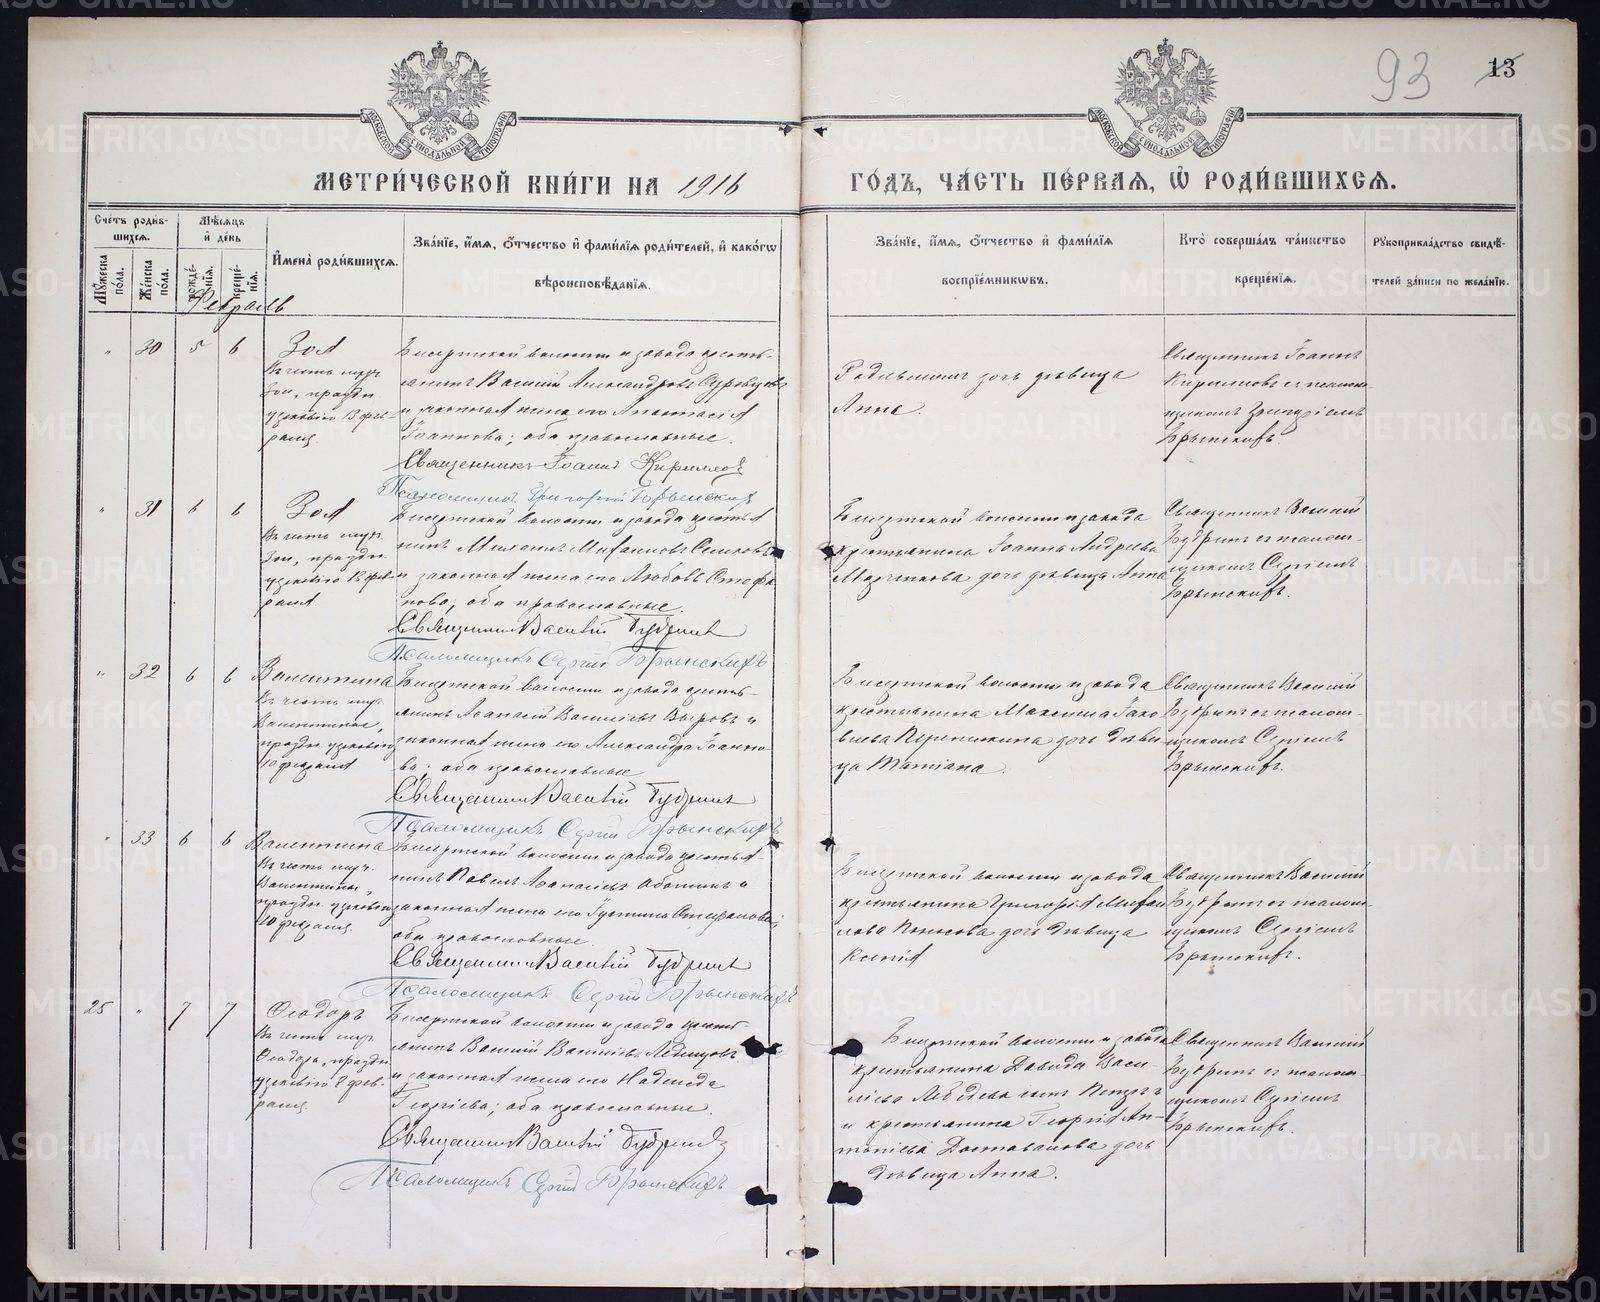 93
13
МОСКОВСКОЙ СѴНОДАЛЬНОЙ ТИПОГРАФІИ
МОСКОВСКОЙ СѴНОДАЛЬНОЙ ТИПОГРАФІИ
МЕТРИ́ЧЕСКОЙ КНИ́ГИ НА 1916
ГО́ДЪ, ЧА́СТЬ ПЕ́РВАЯ, Ѡ҆ РОДИ́ВШИХСЯ.
Сче́тъ роди́в-
шихся.
Мꙋ́жеска по́ла.
Же́нска по́ла.
Мѣ́сяцъ
и҆ де́нь
рожде́-
нїя.
креще́-
нїя.
И҆мена̀ роди́вшихся.
Зва́нїе, и҆́мя, ѻ҆́тчество и҆ фами́лїя роди́телей, и҆ како́гѡ
вѣроисповѣ́данїя.
Зва́нїе, и҆́мя, ѻ҆́тчество и҆ фами́лїя
воспрїе́мникѡвъ.
Кто̀ соверша́лъ та́инство
креще́нїя.
Рꙋкоприкла́дство свидѣ́-
телей за́писи по жела́нїю.
Февраль
" 30 5 6
Зоя
Въ честь муч.
Зои, праздн.
церковію 13 фев-
раля
Бисертской волости и завода кресть-
янинъ Василій Александровъ
и законная жена его Анастасія
Іоаннова; оба православные.
Священникъ Іоаннъ Кирилловъ
Псаломщикъ Григорій Брынскихъ
дочь дѣвица
Анна.
Священникъ Іоаннъ
Кирилловъ съ псалом-
щикомъ Григоріемъ
Брынскихъ.
" 31 6 6
Зоя
Въ честь муч.
Зои, праздн.
церковію 13 фев-
раля
Бисертской волости и завода крестья-
нинъ Михаиловъ
и законная жена его Любовь Стефа-
нова; оба православные.
Священникъ Василій Будринъ
Псаломщикъ Сергій Брынскихъ
Бисертской волости и завода
крестьянина Іоанна Андреева
дочь дѣвица Анна
Священникъ Василій
Будринъ съ псалом-
щикомъ Сергіемъ
Брынскихъ.
" 32 6 6
Валентина
Въ честь муч.
Валентины,
праздн. церковію
10 февраля
Бисертской волости и завода кресть-
янинъ Аѳанасій Васильевъ Выровъ и
законная жена его Александра Іоанно-
ва; оба православные
Священникъ Василій Будринъ
Псаломщикъ Сергій Брынскихъ
Бисертской волости и завода
крестьянина Максима Іако-
влева дочь дѣви-
ца
Священникъ Василій
Будринъ съ псалом-
щикомъ Сергіемъ
Брынскихъ.
" 33 6 6
Валентина
Въ честь муч.
Валентины,
праздн. церковію
10 февраля.
Бисертской волости и завода крестья-
нинъ Павелъ Аѳанасіевъ и
законная жена его Стефанова;
оба православные.
Священникъ Василій Будринъ
Псаломщикъ Сергій Брынскихъ
Бисертской волости и завода
крестьянина Григорія Михаи-
лова дочь дѣвица
Ксенія
Священникъ Василій
Будринъ съ псалом-
щикомъ Сергіемъ
Брынскихъ.
25 " 7 7
Ѳеодоръ
Въ честь муч.
Ѳеодора, праздн.
церковію 8 фев-
раля.
Бисертской волости и завода кресть-
янинъ Василій Васильевъ
и законная жена его Надежда
Георгіева; оба православные.
Священникъ Василій Будринъ
Псаломщикъ Сергій Брынскихъ
Бисертской волости и завода
крестьянина Давида Васи-
ліева Лебедева сынъ Петръ
и крестьянина Георгія Ан-
тоніева дочь
дѣвица Анна.
Священникъ Василій
Будринъ съ псалом-
щикомъ Сергіемъ
Брынскихъ.
METRIKI.GASO-URAL.RU